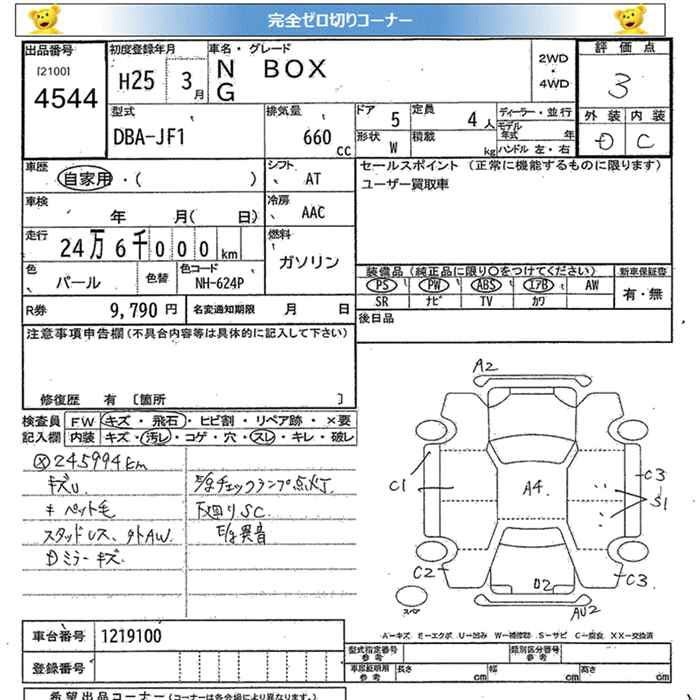 完全ゼロ切りコーナー
出品番号 初度登録年月 車名・グレード 評価点
[2100]
4544 H25 3月 N BOX 2WD・4WD 3
G
外装 内装
型式 排気量 ドア 5 定員 4人 ディーラー・並行
DBA-JF1 660cc 形状 W 積載 kg モデル年式 年
ハンドル 左・右
D C
車歴 シフト セールスポイント（正常に機能するものに限ります）
自家用・( ) AT ユーザー買取車
車検 冷房
年 月( 日) AAC
走行 燃料
24万6千000km ガソリン
色 色替 色コード 装備品（純正品に限り○をつけてください） 新車保証書
パール NH-624P PS PW ABS エアB AW 有・無
SR ナビ TV カワ
R券 9,790円 名変通知期限 月 日 後日品
注意事項申告欄(不具合内容等は具体的に記入して下さい)
修復歴 有 [箇所 ]
検査員 FW キズ・飛石・ヒビ割・リペア跡・×要
記入欄 内装 キズ・汚レ・コゲ・穴・スレ・キレ・破レ
245994km
キズU E/gチェックランプ点灯
キ ペット毛 下廻りSC
スタッドレス、外AW E/g異音
Dミラーキズ
A2
C1 A4 C3
S1
C2 02 C3
スペア AU2
A－キズ E－エクボ U－凹み W－補修跡 S－サビ C－腐食 XX－交換済
車台番号 1219100
型式指定番号 参考 類別区分番号 参考
登録番号 車庫証明用 参考 長さ cm 幅 cm 高さ cm
希望出品コーナー（コーナーは各会場により異なります。）